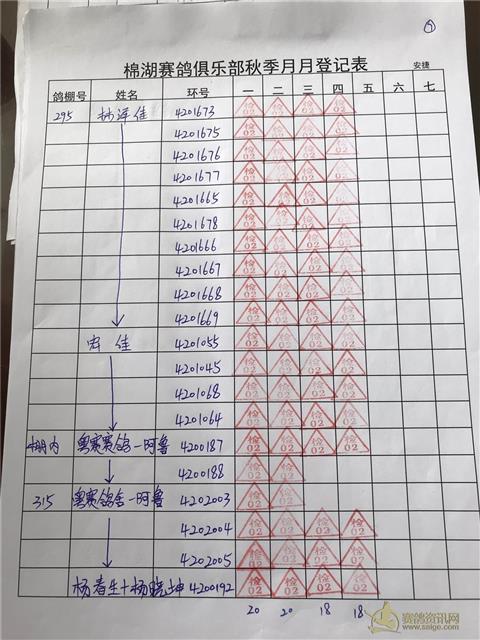 ⑦
棉湖赛鸽俱乐部秋季月月登记表 安捷
鸽棚号 姓名 环号 一 二 三 四 五 六 七
295 林泽佳 4201673 检02 检02 检02 检02
4201675 检02 检02 检02 检02
4201676 检02 检02 检02 检02
4201677 检02 检02 检02 检02
4201665 检02 检02 检02 检02
4201678 检02 检02 检02 检02
4201666 检02 检02 检02 检02
4201667 检02 检02 检02 检02
4201668 检02 检02 检02 检02
4201669 检02 检02 检02 检02
佳 4201055 检02 检02 检02 检02
4201045 检02 检02 检02 检02
4201068 检02 检02 检02 检02
4201064 检02 检02 检02 检02
棚内 粤赛赛鸽一阿鲁 4200187 检02 检02 检02 检02
4200188 检02 检02
315 粤赛鸽舍一阿鲁 4202003 检02 检02
4202004 检02 检02 检02 检02
4202005 检02 检02 检02 检02
杨春生+杨晓坤 4200192 检02 检02 检02 检02
20 20 18 18
赛鸽资讯网
www.saige.com